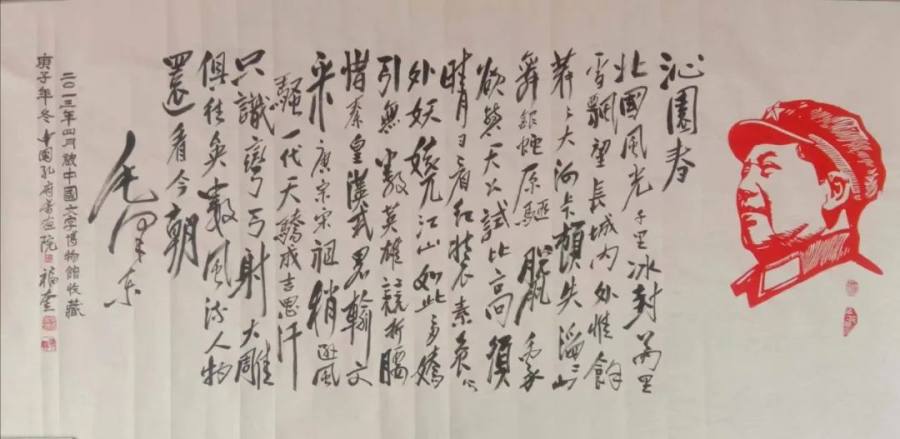 沁園春
北國風光千里冰封萬里
雪飄望長城内外惟餘
莽々大河上下頓失滔々山
舞銀蛇原馳臘象
欲與天公試比高須
晴日看紅裝素裹分
外妖嬈江山如此多嬌
引無數英雄競折腰
惜秦皇漢武畧輸文
采唐宗宋祖稍遜風
騷一代天驕成吉思汗
只識彎弓射大雕
俱往矣數風流人物
還看今朝
毛澤東
二〇一三年四月被中國文字博物館收藏
庚子年冬中國孔府書画院福奎